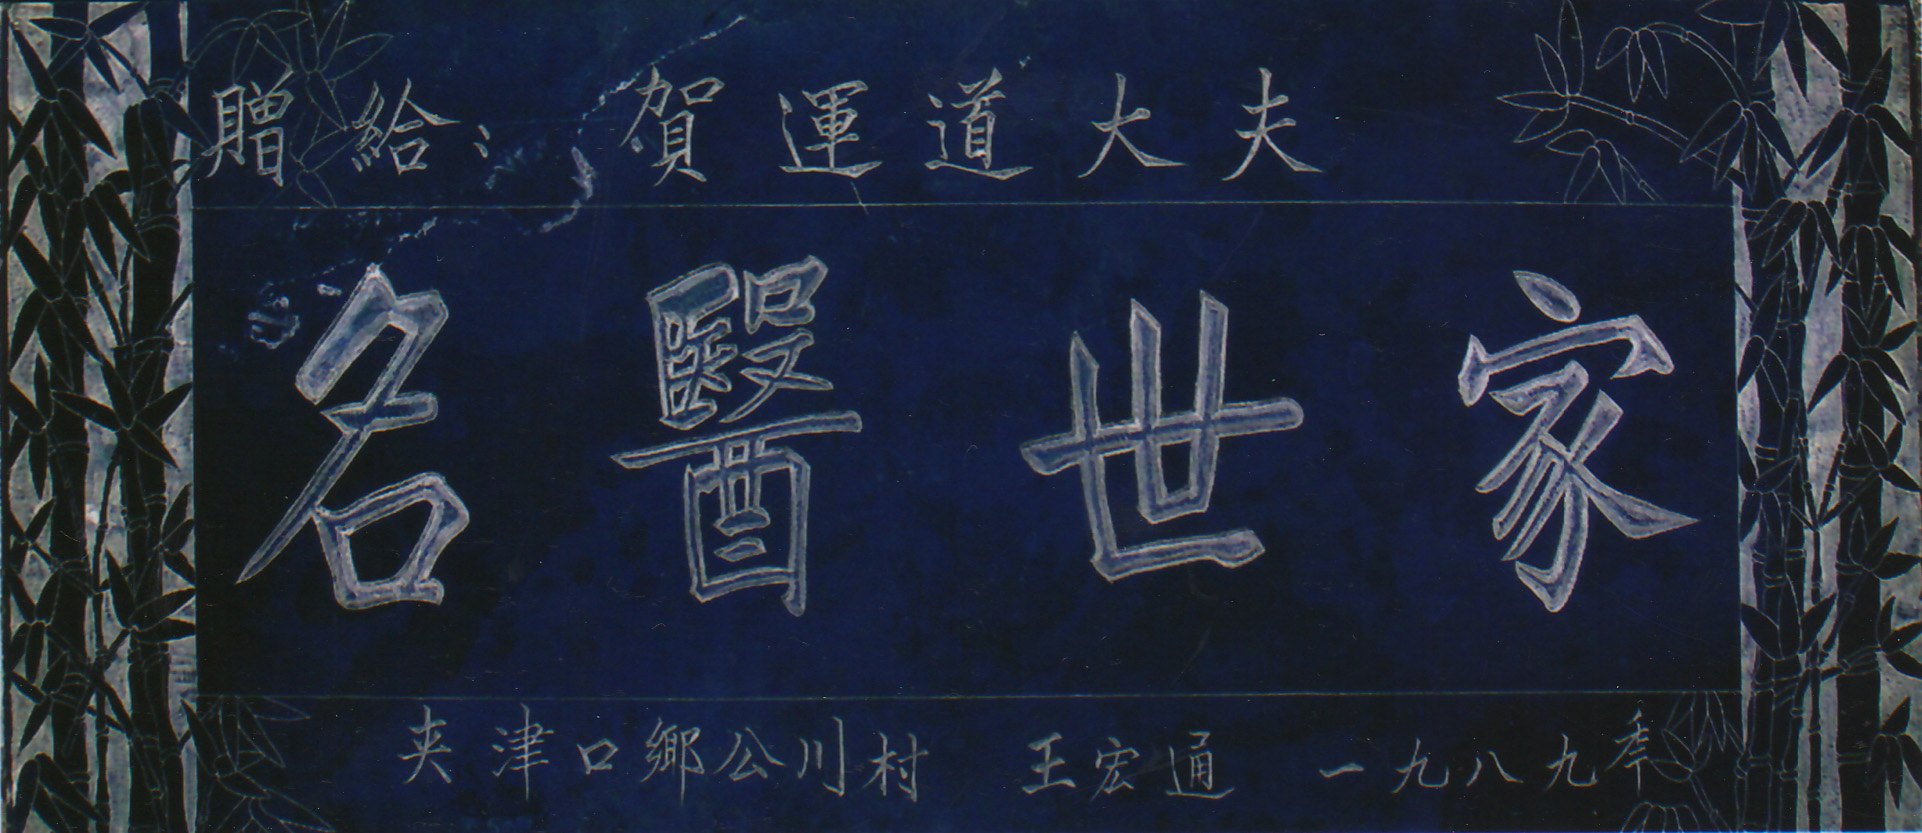 贈給：賀運道大夫
名醫世家
夹津口鄉公川村 王宏通 一九八九季